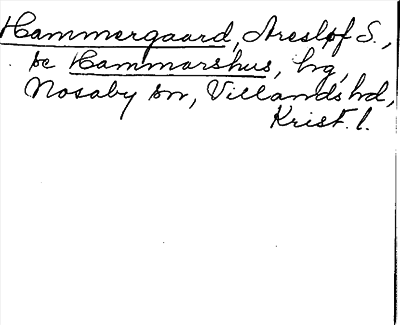 Hammergaard, Aresløf S.,
se Hammarshus, hg,
Nosaby sn, Villands hd,
Krist. l.